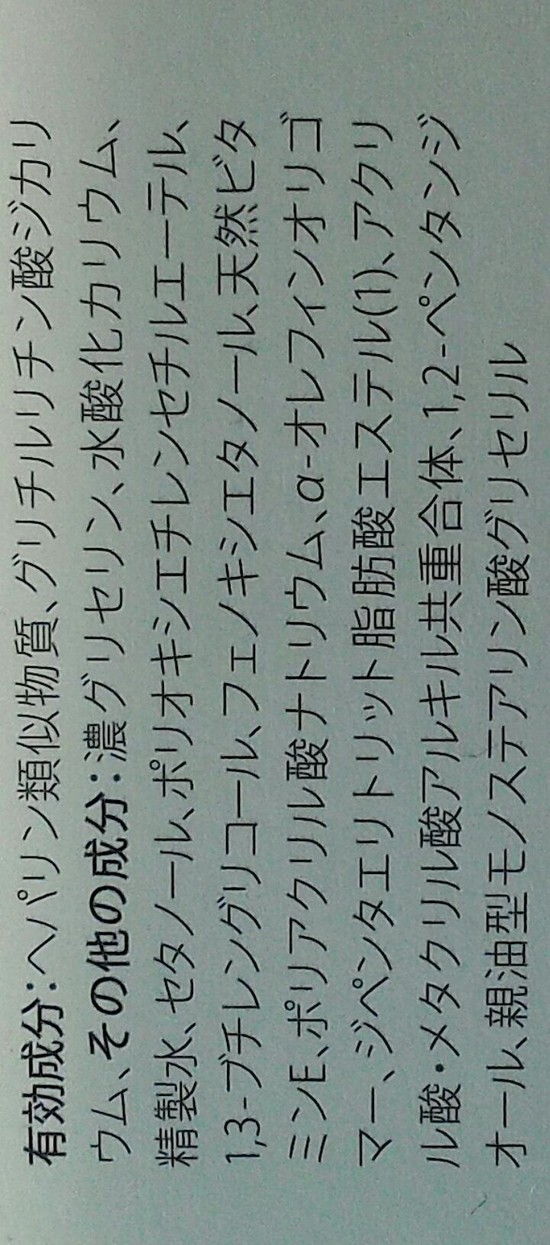 有効成分：ヘパリン類似物質、グリチルリチン酸ジカリ
ウム、その他の成分：濃グリセリン、水酸化カリウム、
精製水、セタノール、ポリオキシエチレンセチルエーテル、
1,3-ブチレングリコール、フェノキシエタノール、天然ビタ
ミンE、ポリアクリル酸ナトリウム、α-オレフィンオリゴ
マー、ジペンタエリトリット脂肪酸エステル(1)、アクリ
ル酸・メタクリル酸アルキル共重合体、1,2-ペンタンジ
オール、親油型モノステアリン酸グリセリル